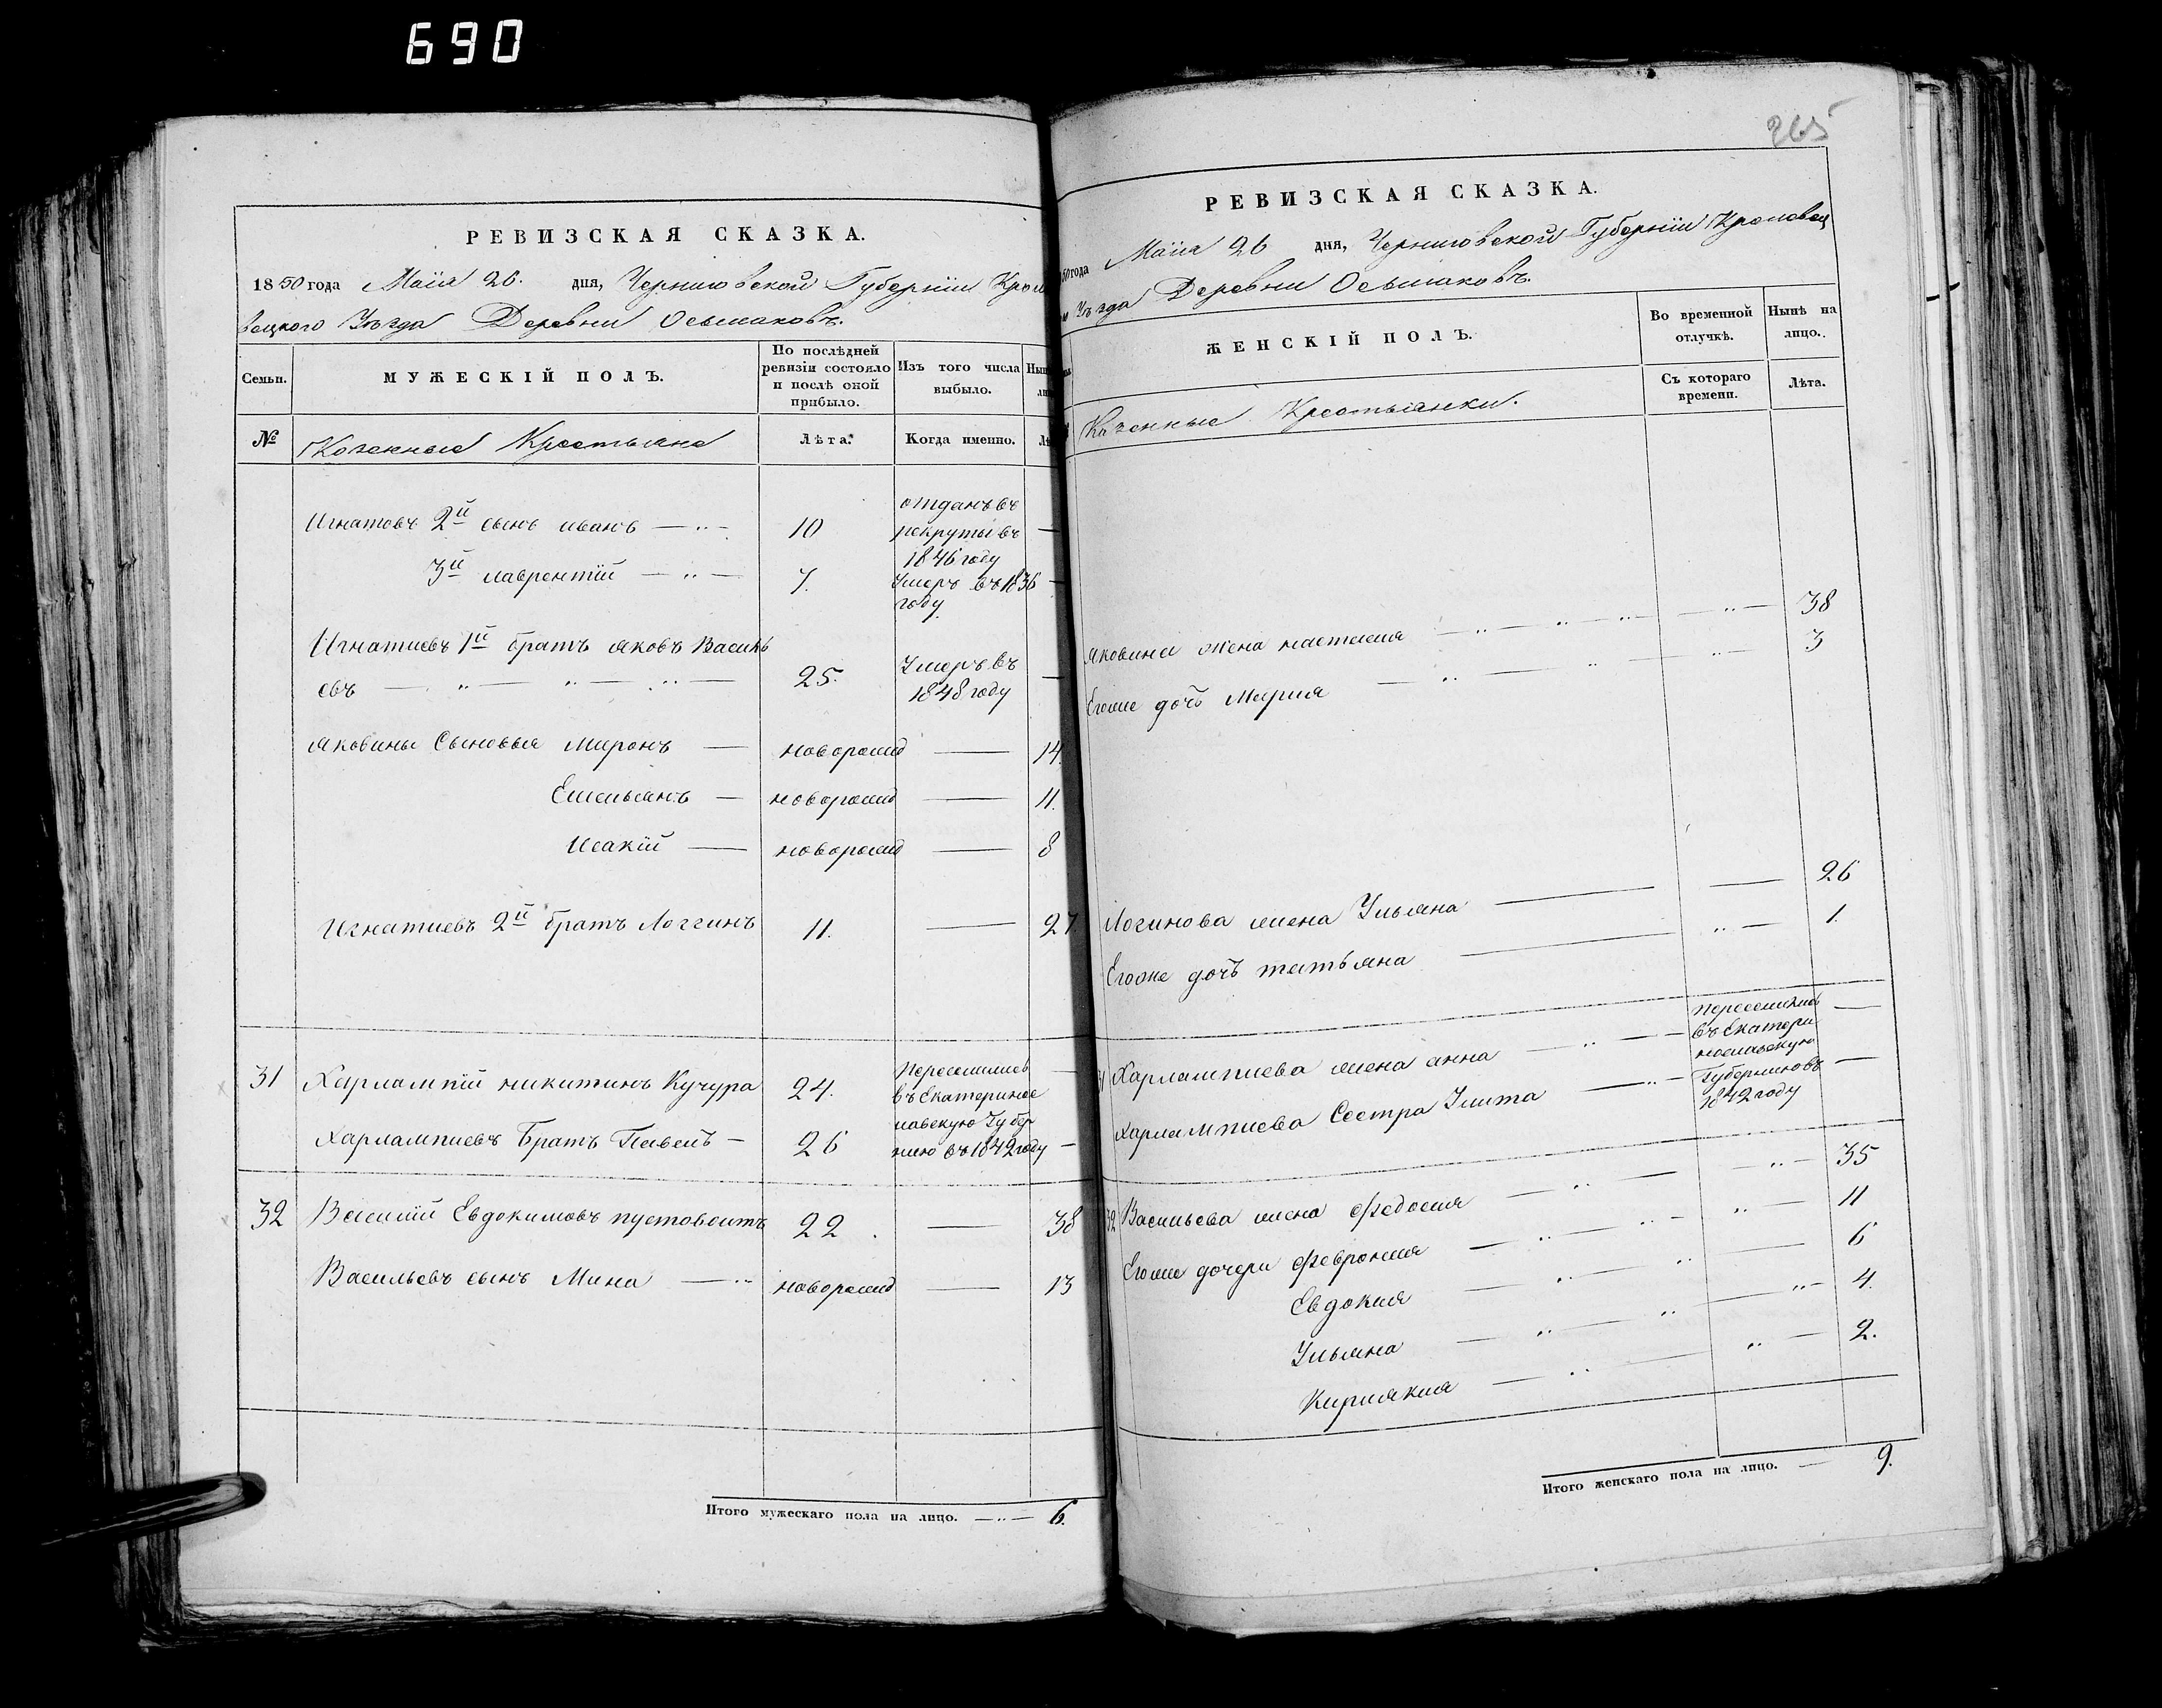 690
265
РЕВИЗСКАЯ СКАЗКА.
1850 года Маїя 26. дня, Черниговской Губернїи Кроле
вецкого Уѣзда Деревни Осьмаковъ.
Семьи.
МУЖЕСКІЙ ПОЛЪ.
По послѣдней ревизіи состояло и послѣ оной прибыло.
Изъ того числа выбыло.
№
Казенные Крестьяне
Лѣта.
Когда именно.
Игнатовъ 2й сынъ иванъ — 10 отданъ въ
рекруты въ
1846 году —
3й лаврентїй — 7. Умеръ въ 1836
году —
Игнатиевъ 1й братъ яковъ Василь
евъ — 25. Умеръ въ
1848 году —
яковины Сыновья Миронъ — новорожд — 14.
Емельянъ — новорожд — 11.
Исакїй — новорожд — 8
Игнатиевъ 2й братъ Логгинъ 11. — 27.
31 Харлампїй никитинъ Кучура 24. Переселились
въ Екатеринос
лавскую Губер
нию въ 1842 году —
Харлампиевъ Братъ Павелъ — 26 —
32 Василїй Евдокимовъ пустовоитъ 22. — 38
Васильевъ сынъ Мина — новорожд — 13
Итого мужескаго пола на лицо. — 6.
РЕВИЗСКАЯ СКАЗКА.
50 года Маїя 26 дня, Черниговской Губернїи Кролевец
Уѣзда Деревни Осьмаковъ.
ЖЕНСКІЙ ПОЛЪ.
Во временной отлучкѣ.
Нынѣ на лицо.
Съ котораго времени.
Лѣта.
Казенные Крестьянки.
яковина жена настасия — 38
Егоже дочь Мария — 3
Логинова жена Ульяна — 26
Егоже дочь татьяна — 1.
31 Харлампиева жена анна — Переселились
въ Екатери
нославскую
Губернию въ
1842 году —
Харлампиева Сестра Улита — —
32 Васильева жена Федосия — 35
Егоже дочери Феврония — 11
Евдокия — 6
Ульяна — 4.
Кириякия — 2.
Итого женскаго пола на лицо. — 9.